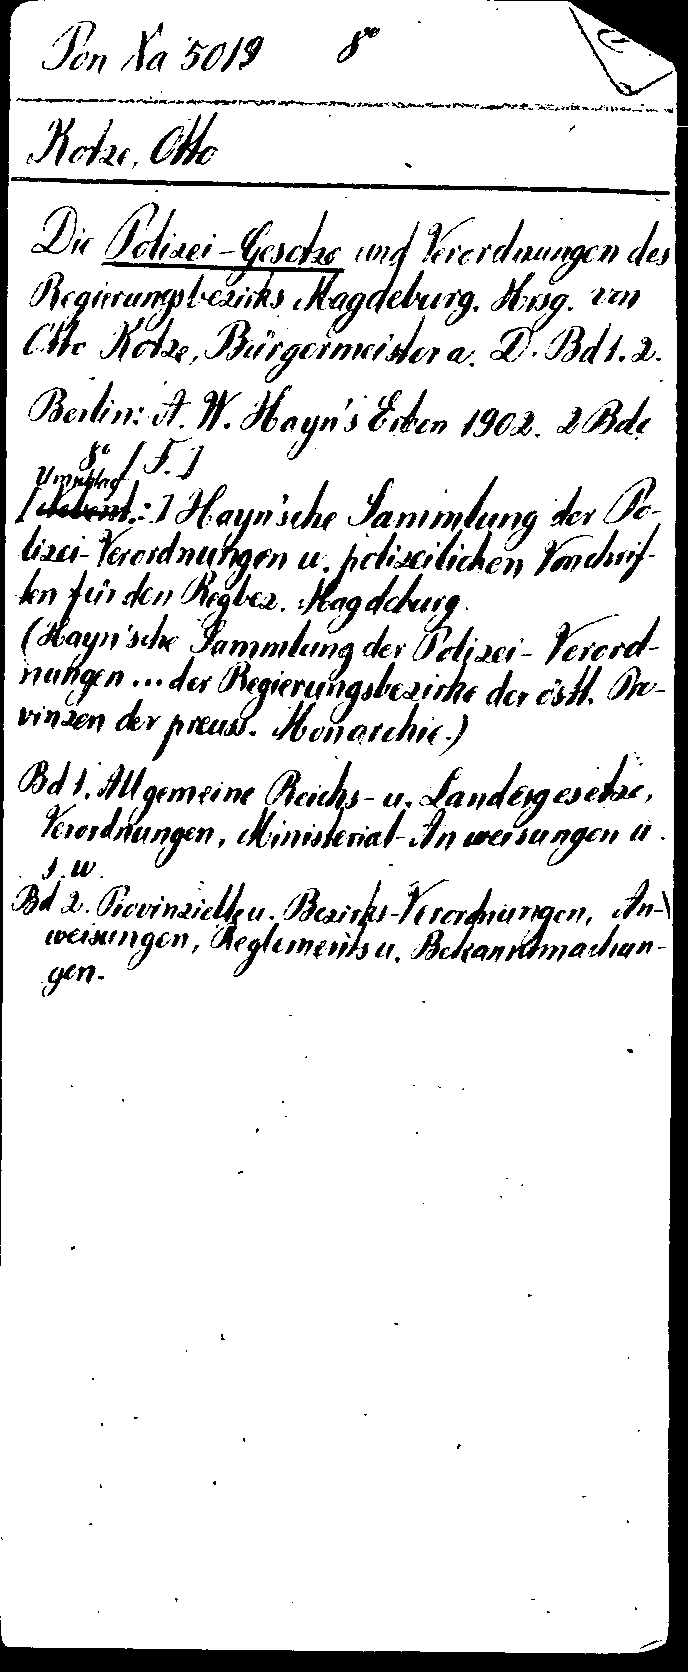 Pon Xa 5019 8°
Kotze, Otto
Die Polizei-Gesetze und Verordnungen des
Regierungsbezirks Magdeburg. Hrsg. von
Otto Kotze, Bürgermeister a. D. Bd 1. 2.
Berlin: A. W. Hayn's Erben 1902. 2 Bde
8° [F.]
Umschlag
[Nebent.:] Hayn'sche Sammlung der Po-
lizei-Verordnungen u. polizeilichen Vorschrif-
ten für den Regbez. Magdeburg.
(Hayn'sche Sammlung der Polizei-Verord-
nungen... der Regierungsbezirke der östl. Pro-
vinzen der preuss. Monarchie.)
Bd 1. Allgemeine Reichs- u. Landesgesetze,
Verordnungen, Ministerial-Anweisungen u.
s. w.
Bd 2. Provinzielle u. Bezirks-Verordnungen, An-
weisungen, Reglements u. Bekanntmachun-
gen.